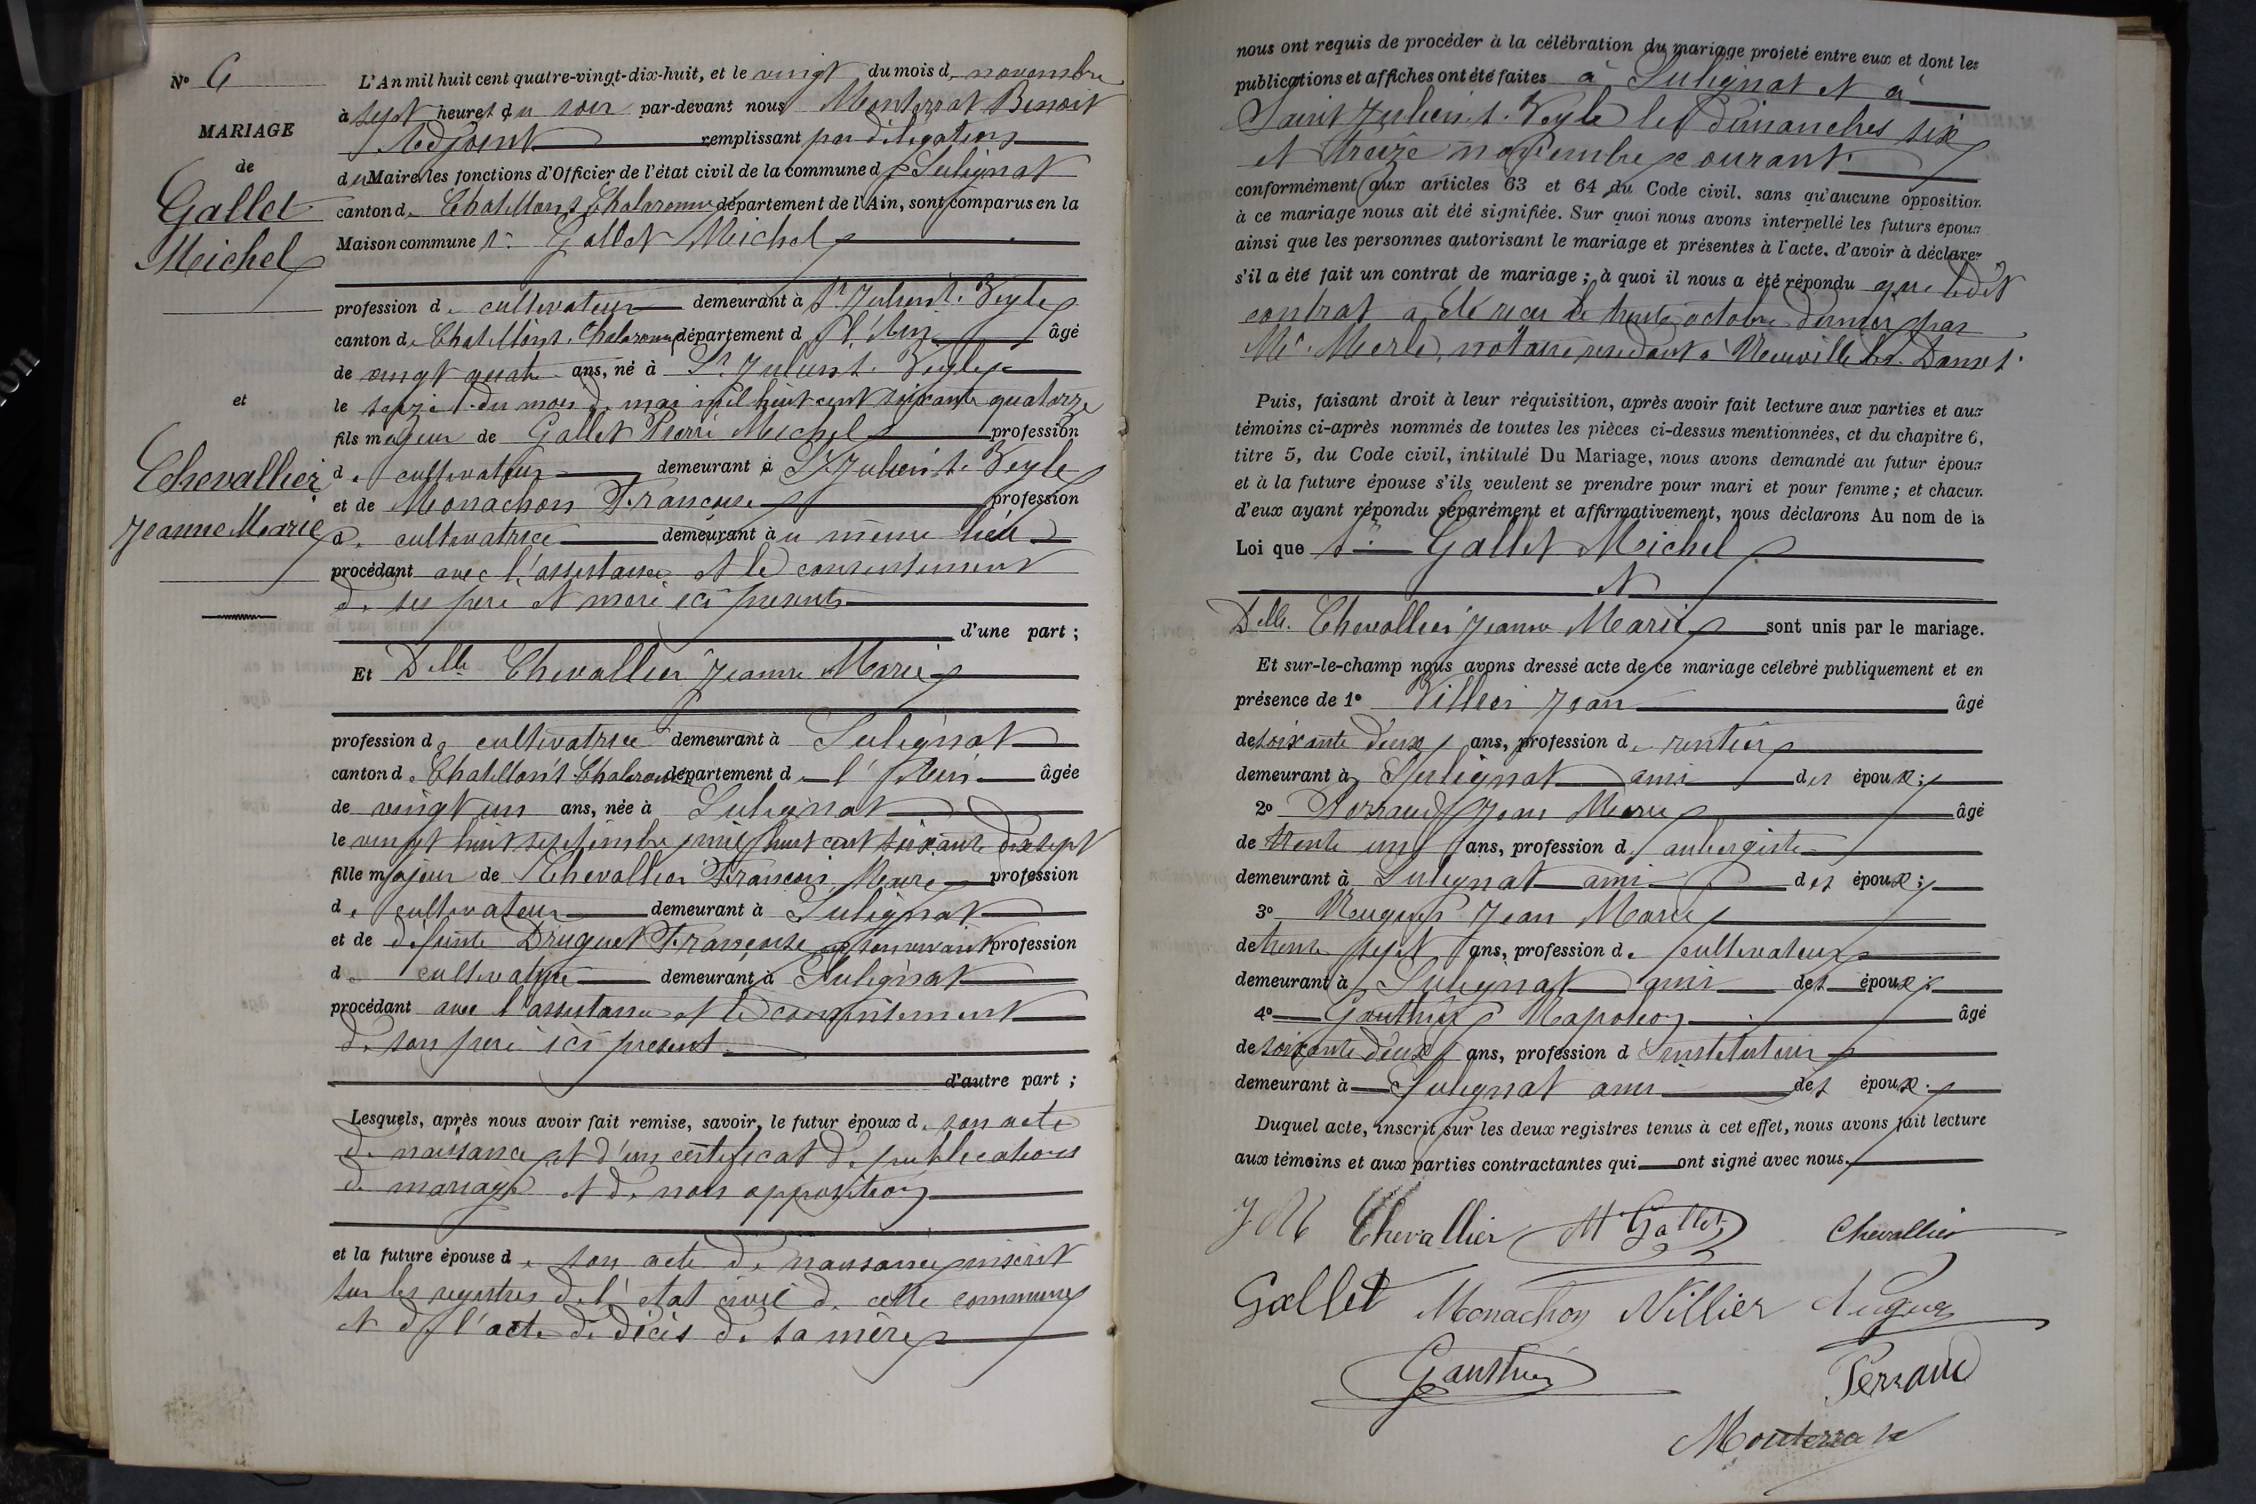 N° 6
MARIAGE
de
Gallet
Michel
et
Chevallier
Jeanne Marie
L'An mil huit cent quatre-vingt-dix-huit, et le vingt du mois d. novembre
à sept heures du soir par-devant nous Monterrat Benoit
Adjoint remplissant par délégation
du Maire les fonctions d'Officier de l'état civil de la commune d Sulignat
canton d. Chatillon s. Chalaronne département de l'Ain, sont comparus en la
Maison commune Sr Gallet Michel
profession d. cultivateur demeurant à St Julien s. Veyle
canton d. Chatillon s. Chalaronne département d l'Ain âgé
de vingt quatre ans, né à St Julien s. Veyle
le seize du mois d. mai mil huit cent soixante quatorze
fils majeur de Gallet Pierre Michel profession
d. cultivateur demeurant à St Julien s. Veyle
et de Monachon Francoise profession
d. cultivatrice demeurant à u même lieu
procédant avec l'assistance et le consentement
de ses père et mère ici présents
d'une part ;
Et Delle Chevallier Jeanne Marie
profession d. cultivatrice demeurant à Sulignat
canton d. Chatillon s. Chalaronne département d l'Ain âgée
de vingt un ans, née à Sulignat
le vingt huit septembre mil huit cent soixante dix sept
fille majeur de Chevallier François Marie profession
d. cultivateur demeurant à Sulignat
et de défunte Druguet Françoise en son vivant profession
d. cultivatrice demeurant à Sulignat
procédant avec l'assistance et le consentement
de son père ici présent
d'autre part ;
Lesquels, après nous avoir fait remise, savoir, le futur époux d. son acte
de naissance et d'un certificat de publications
de mariage et de non opposition
et la future épouse d. son acte de naissance inscrit
sur les registres de l'état civil de cette commune
et de l'acte de décès de sa mère
nous ont requis de procéder à la célébration du mariage projeté entre eux et dont les
publications et affiches ont été faites à Sulignat et à
Saint Julien s. Veyle les dimanches six
et treize novembre courant
conformément aux articles 63 et 64 du Code civil. sans qu'aucune opposition
à ce mariage nous ait été signifiée. Sur quoi nous avons interpellé les futurs époux
ainsi que les personnes autorisant le mariage et présentes à l'acte. d'avoir à déclarer
s'il a été fait un contrat de mariage ; à quoi il nous a été répondu que ledit
contrat a été reçu le trente octobre dernier par
Me Merle, notaire résidant à Neuville les Dames.
Puis, faisant droit à leur réquisition, après avoir fait lecture aux parties et aux
témoins ci-après nommés de toutes les pièces ci-dessus mentionnées, et du chapitre 6,
titre 5, du Code civil, intitulé Du Mariage, nous avons demandé au futur époux
et à la future épouse s'ils veulent se prendre pour mari et pour femme ; et chacun
d'eux ayant répondu séparément et affirmativement, nous déclarons Au nom de la
Loi que Sr Gallet Michel
et
Delle. Chevallier Jeanne Marie sont unis par le mariage.
Et sur-le-champ nous avons dressé acte de ce mariage célébré publiquement et en
présence de 1° Villier Jean âgé
de soixante deux ans, profession d. rentier
demeurant à Sulignat ami des époux ;
2° Perraud Jean Marie âgé
de trente un ans, profession d. aubergiste
demeurant à Sulignat ami des époux ;
3° Nugues Jean Marie
de trente sept ans, profession d. cultivateur
demeurant à Sulignat ami des époux ;
4° Gauthier Napoléon âgé
de soixante deux ans, profession d instituteur
demeurant à Sulignat ami des époux.
Duquel acte, inscrit sur les deux registres tenus à cet effet, nous avons fait lecture
aux témoins et aux parties contractantes qui ont signé avec nous.
J M Chevallier M Gallet Chevallier
Gallet Monachon Villier Nugues
Gauthier Perraud
Monterrat